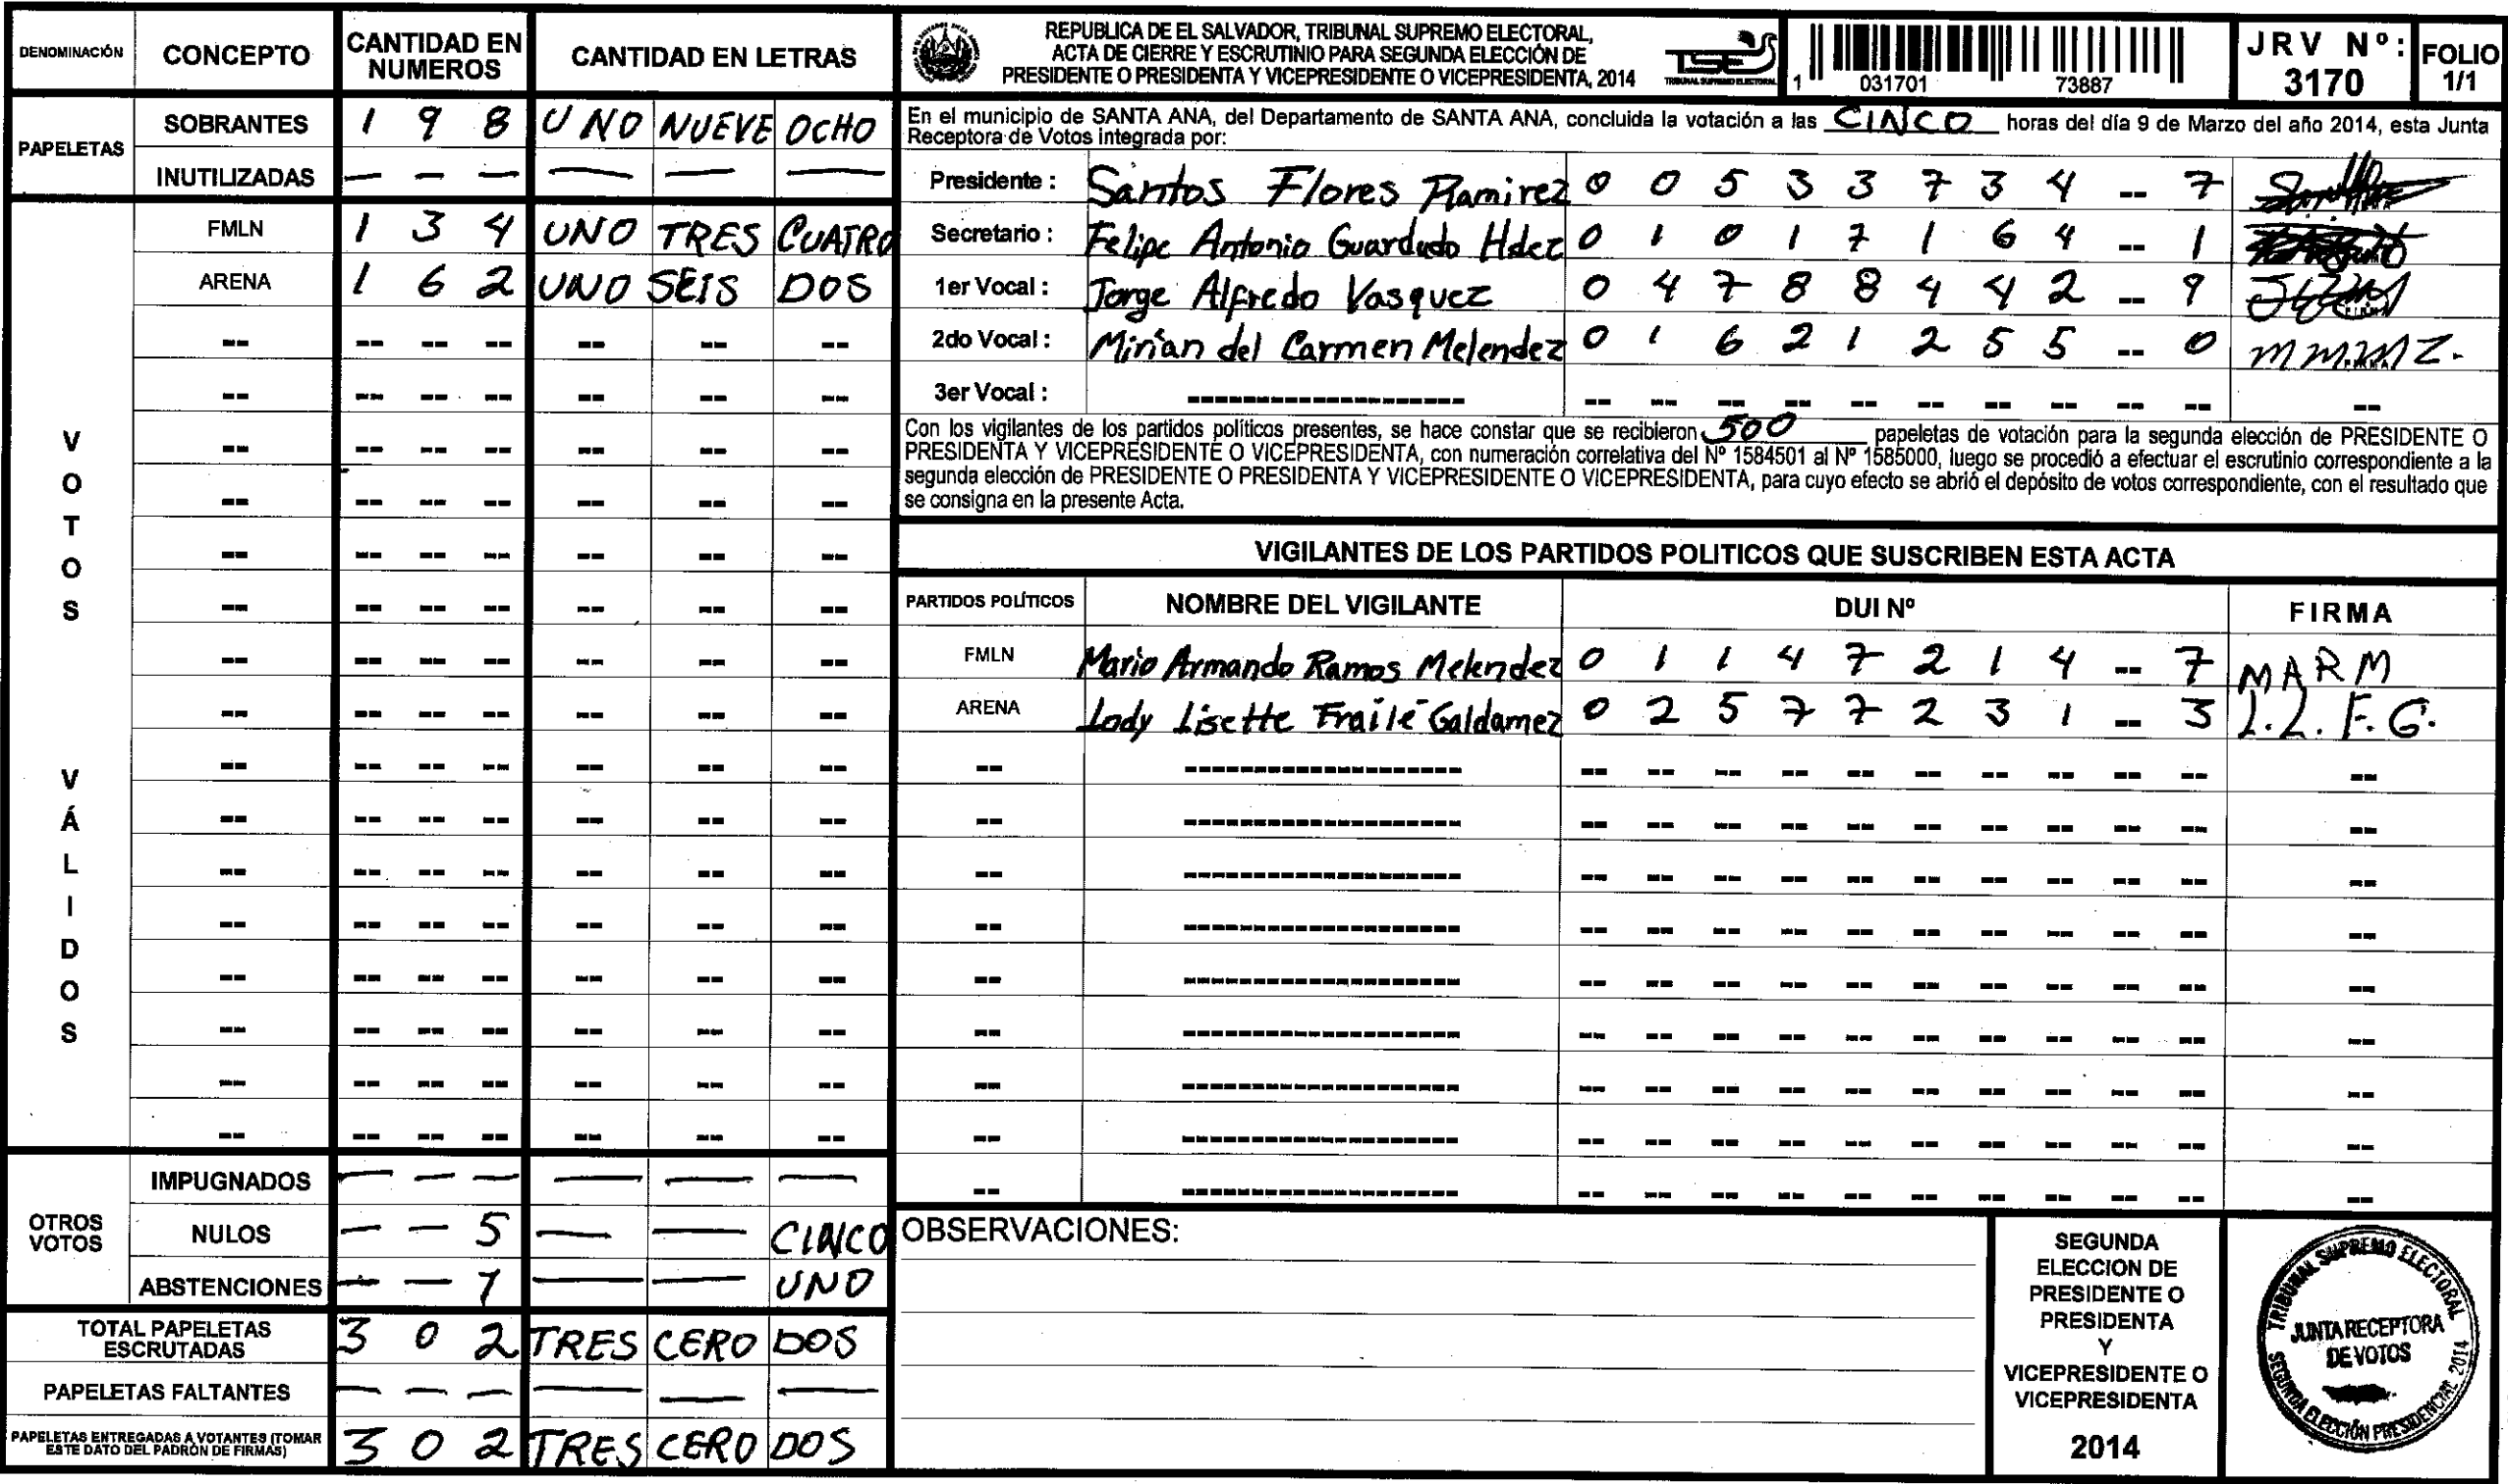 DENOMINACIÓN CONCEPTO CANTIDAD EN NUMEROS CANTIDAD EN LETRAS
PAPELETAS
SOBRANTES 1 9 8 UNO NUEVE OCHO
INUTILIZADAS — — — — — —
VOTOS VÁLIDOS
FMLN 1 3 4 UNO TRES CUATRO
ARENA 1 6 2 UNO SEIS DOS
OTROS VOTOS
IMPUGNADOS — — — — — —
NULOS — — 5 — — CINCO
ABSTENCIONES — — 1 — — UNO
TOTAL PAPELETAS ESCRUTADAS 3 0 2 TRES CERO DOS
PAPELETAS FALTANTES — — — — — —
PAPELETAS ENTREGADAS A VOTANTES (TOMAR ESTE DATO DEL PADRÓN DE FIRMAS) 3 0 2 TRES CERO DOS
REPUBLICA DE EL SALVADOR, TRIBUNAL SUPREMO ELECTORAL,
ACTA DE CIERRE Y ESCRUTINIO PARA SEGUNDA ELECCIÓN DE
PRESIDENTE O PRESIDENTA Y VICEPRESIDENTE O VICEPRESIDENTA, 2014
TSE
TRIBUNAL SUPREMO ELECTORAL
1 031701 73887
JRV Nº: 3170
FOLIO 1/1
En el municipio de SANTA ANA, del Departamento de SANTA ANA, concluida la votación a las CINCO horas del día 9 de Marzo del año 2014, esta Junta
Receptora de Votos integrada por:
Presidente : Santos Flores Ramirez 0 0 5 3 3 7 3 4 -- 7
Secretario : Felipe Antonio Guardado Hdez 0 1 0 1 7 1 6 4 -- 1
1er Vocal : Jorge Alfredo Vasquez 0 4 7 8 8 4 4 2 -- 9
2do Vocal : Mirian del Carmen Melendez 0 1 6 2 1 2 5 5 -- 0
3er Vocal :
Con los vigilantes de los partidos políticos presentes, se hace constar que se recibieron 500 papeletas de votación para la segunda elección de PRESIDENTE O
PRESIDENTA Y VICEPRESIDENTE O VICEPRESIDENTA, con numeración correlativa del Nº 1584501 al Nº 1585000, luego se procedió a efectuar el escrutinio correspondiente a la
segunda elección de PRESIDENTE O PRESIDENTA Y VICEPRESIDENTE O VICEPRESIDENTA, para cuyo efecto se abrió el depósito de votos correspondiente, con el resultado que
se consigna en la presente Acta.
VIGILANTES DE LOS PARTIDOS POLITICOS QUE SUSCRIBEN ESTA ACTA
PARTIDOS POLÍTICOS NOMBRE DEL VIGILANTE DUI Nº FIRMA
FMLN Mario Armando Ramos Melendez 0 1 1 4 7 2 1 4 -- 7 MARM
ARENA Lody Lisette Fraile Galdamez 0 2 5 7 7 2 3 1 -- 3 L.L.F.G.
OBSERVACIONES:
SEGUNDA
ELECCION DE
PRESIDENTE O
PRESIDENTA
Y
VICEPRESIDENTE O
VICEPRESIDENTA
2014
TRIBUNAL SUPREMO ELECTORAL
JUNTA RECEPTORA
DE VOTOS
SEGUNDA ELECCIÓN PRESIDENCIAL 2014